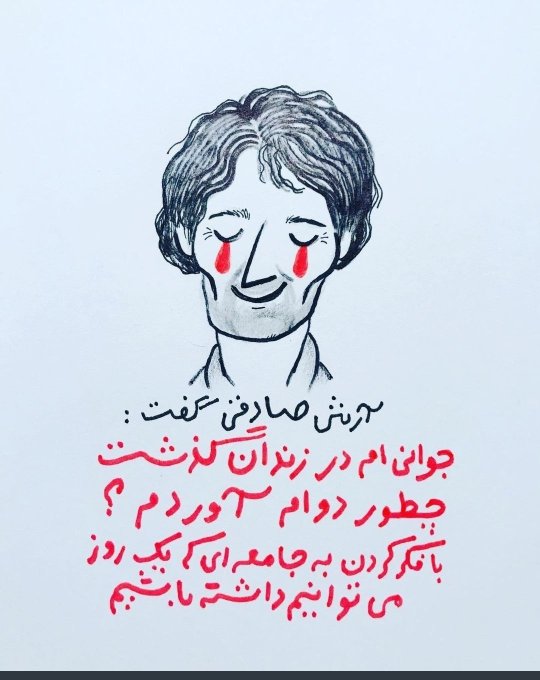 آرش صادقی گفت :
جوانی ام در زندان گذشت
چطور دوام آوردم ؟
با فکر کردن به جامعه ای که یک روز
می توانیم داشته باشیم